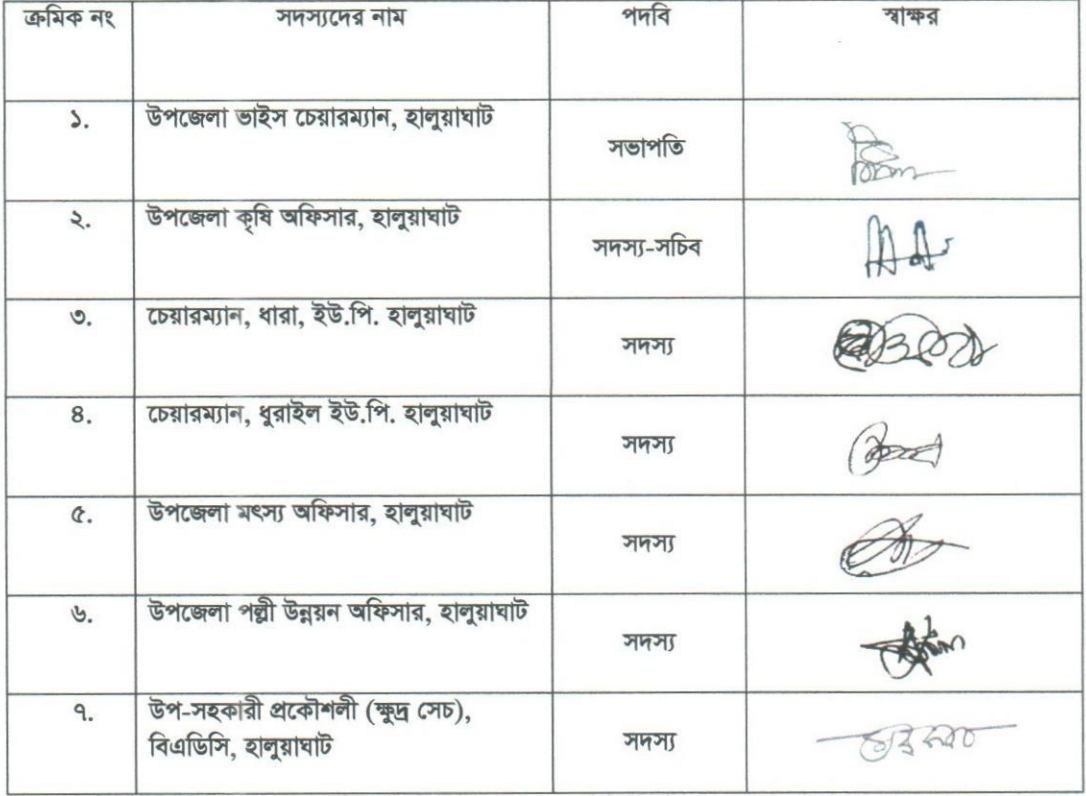 ক্রমিক নং সদস্যদের নাম পদবি স্বাক্ষর
১. উপজেলা ভাইস চেয়ারম্যান, হালুয়াঘাট সভাপতি
২. উপজেলা কৃষি অফিসার, হালুয়াঘাট সদস্য-সচিব
৩. চেয়ারম্যান, ধারা, ইউ.পি. হালুয়াঘাট সদস্য
৪. চেয়ারম্যান, ধুরাইল ইউ.পি. হালুয়াঘাট সদস্য
৫. উপজেলা মৎস্য অফিসার, হালুয়াঘাট সদস্য
৬. উপজেলা পল্লী উন্নয়ন অফিসার, হালুয়াঘাট সদস্য
৭. উপ-সহকারী প্রকৌশলী (ক্ষুদ্র সেচ),
বিএডিসি, হালুয়াঘাট সদস্য